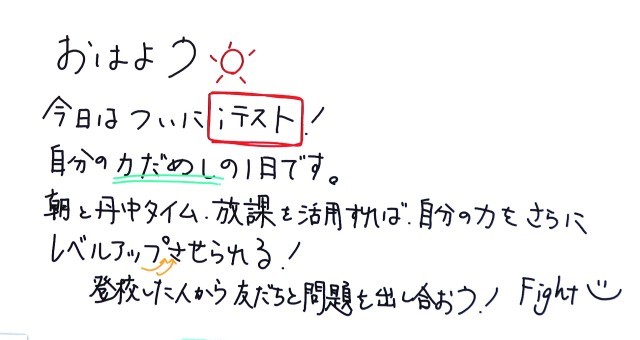 おはよう
今日はついにiテスト!
自分の力だめしの1日です。
朝と丹中タイム、放課を活用すれば、自分の力をさらに
レベルアップさせられる!
登校した人から友だちと問題を出し合おう! Fight